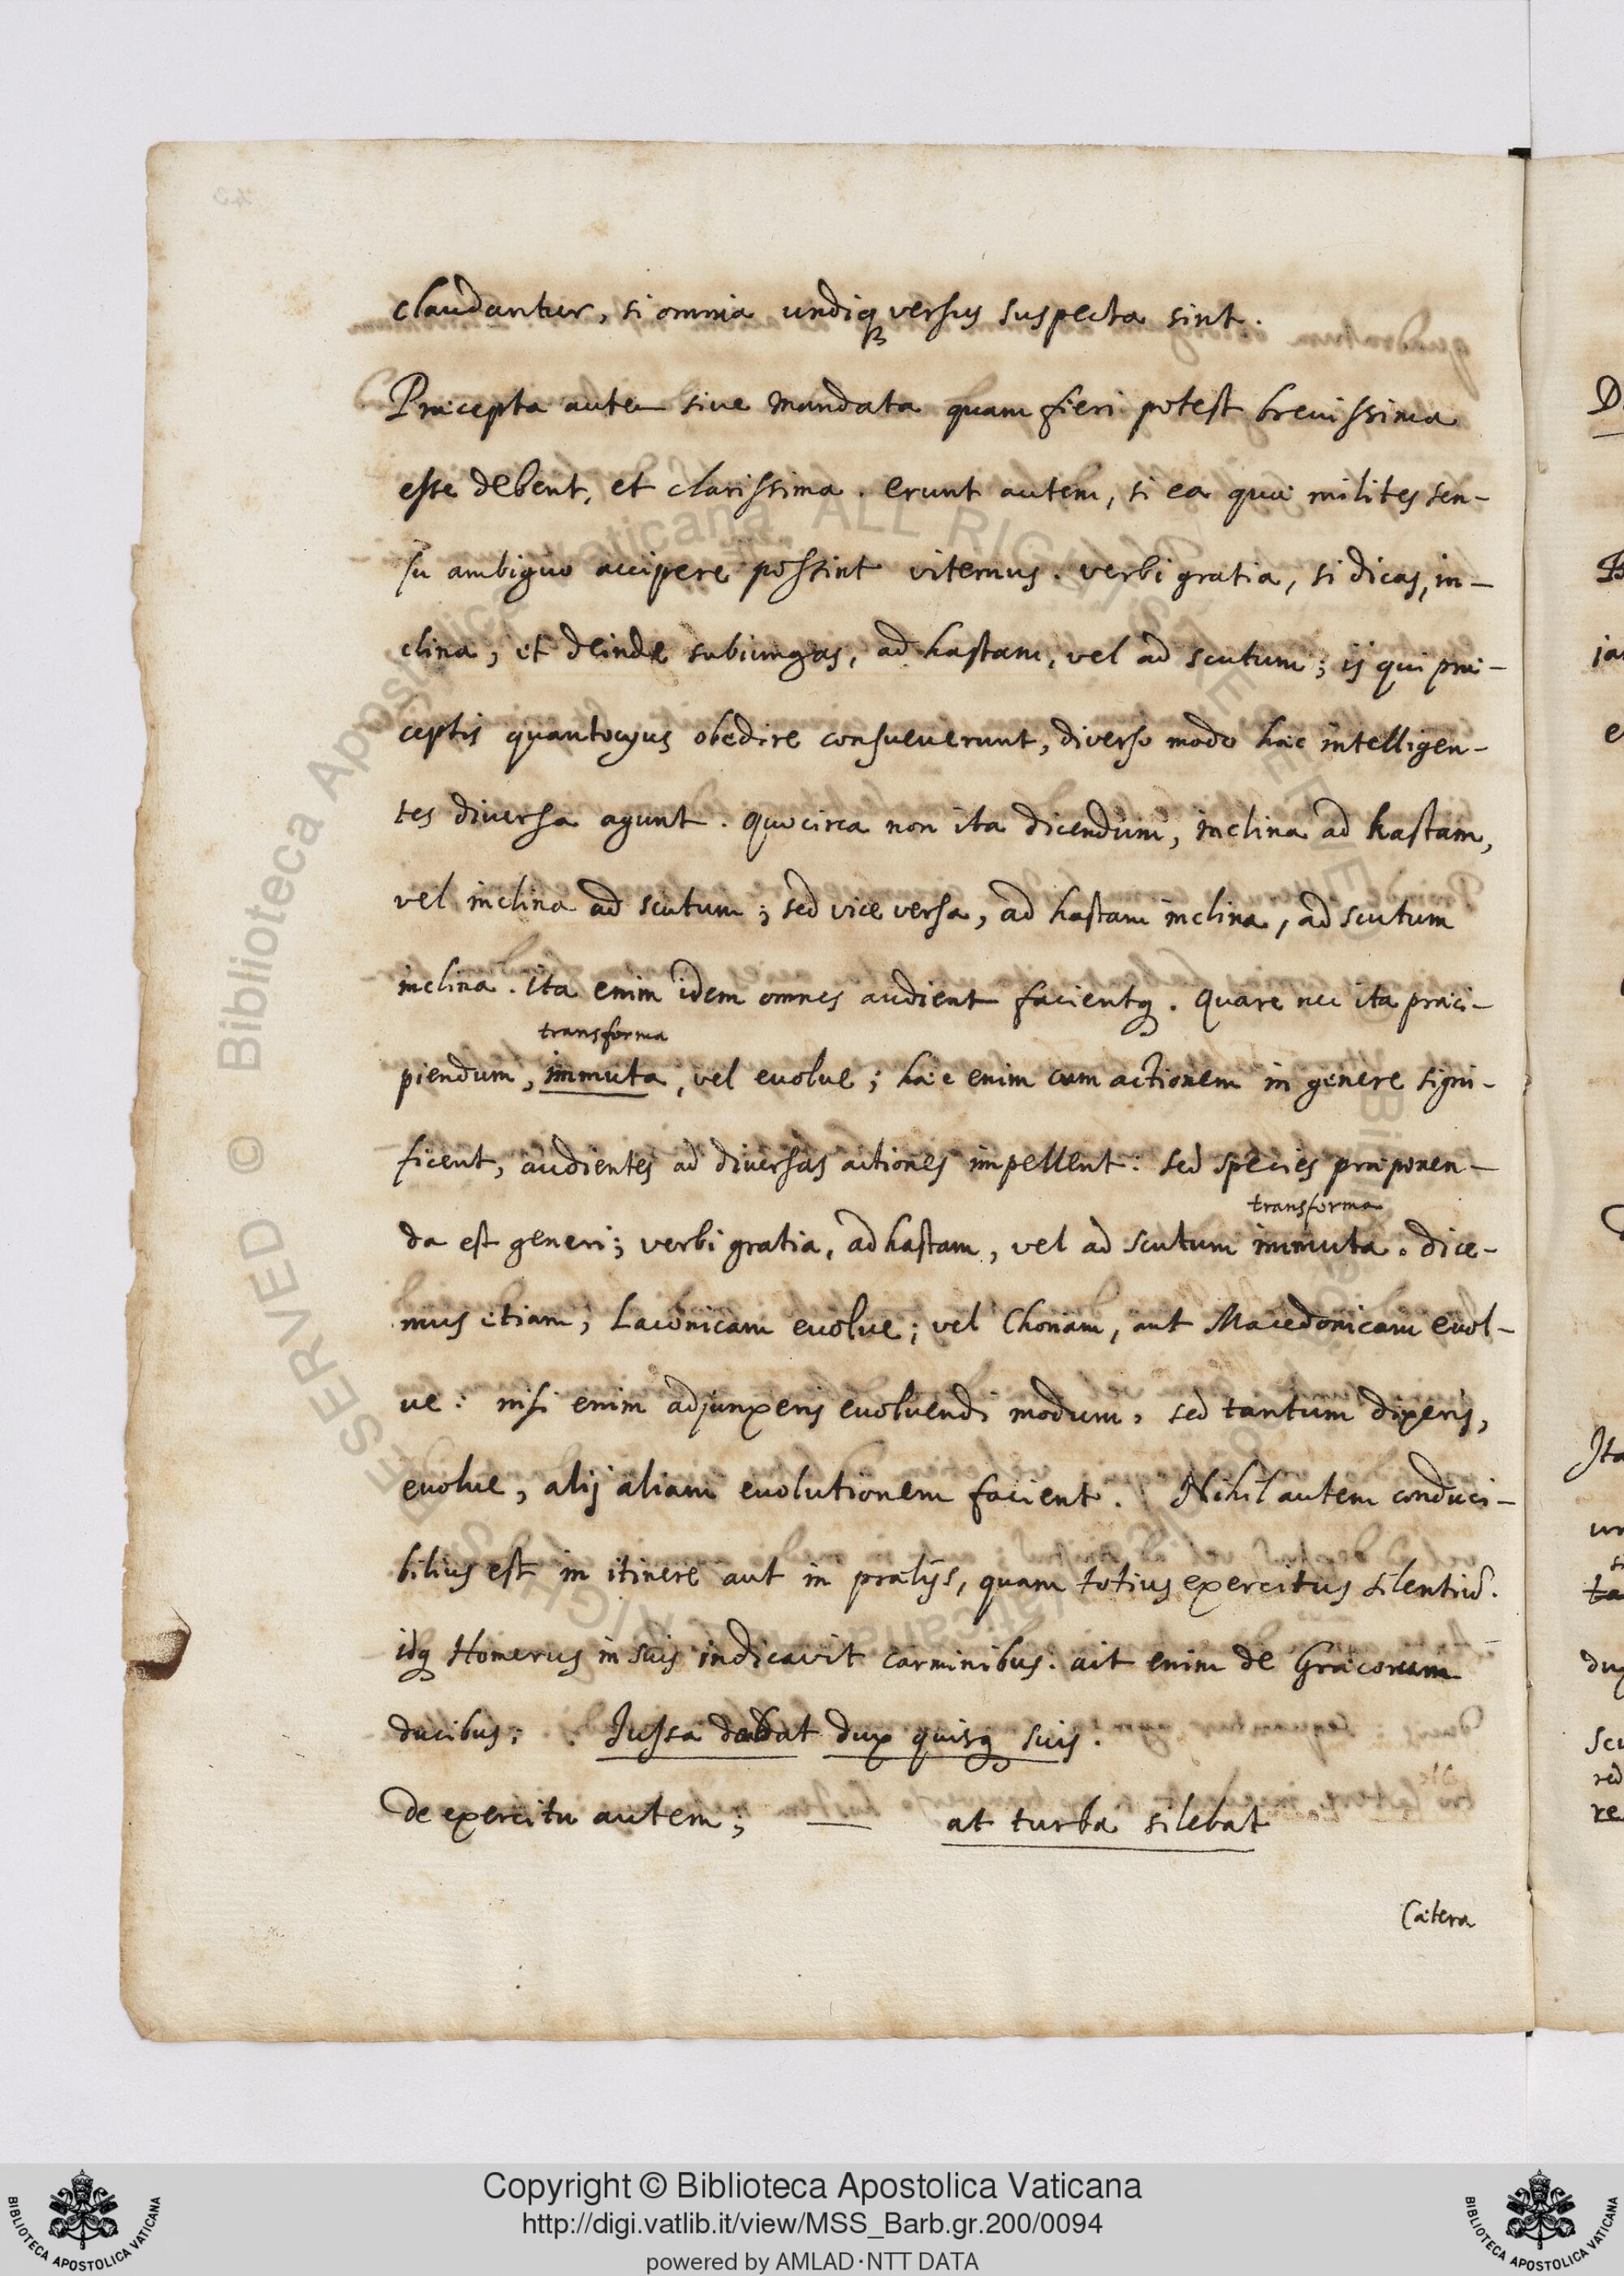 claudantur, si omnia undiq versus suspecta sint.
Præcepta autem siue mandata quam fieri potest breuissima
esse debent, et clarissima. erunt autem, si ea quæ milites sen-
su ambiguo accipere possint vitemus. verbi gratia, si dicas, in-
clina, et deinde subiungas, ad hastam, vel ad scutum; ij qui præ-
ceptis quantocyus obedire consueuerunt, diverso modo hæc intelligen-
tes diversa agunt. quocirca non ita dicendum, inclina ad hastam,
vel inclina ad scutum; sed vice versa, ad hastam inclina, ad scutum
inclina. ita enim idem omnes audient facientq. quare nec ita præci-
transforma
piendum, immuta, vel euolue; hæc enim cum actionem in genere signi-
ficent, audientes ad diversas actiones impellent: sed species præponen-
transforma
da est generi; verbi gratia, ad hastam, vel ad scutum immuta. dice-
mus etiam, Laconicam euolue; vel Choriam, aut Macedonicam euol-
ue: nisi enim adjunxeris euoluendi modum, sed tantum dixeris,
euolue, alij aliam euolutionem facient. Nihil autem conduci-
bilius est in itinere aut in prælijs, quam totius exercitus silentiũ.
idq Homerus in suis indicavit carminibus. ait enim de Græcorum
ducibus: Jussa dabat dux quisq suis.
De exercitu autem; — at turba silebat
Cætera
Copyright © Biblioteca Apostolica Vaticana
http://digi.vatlib.it/view/MSS_Barb.gr.200/0094
powered by AMLAD·NTT DATA